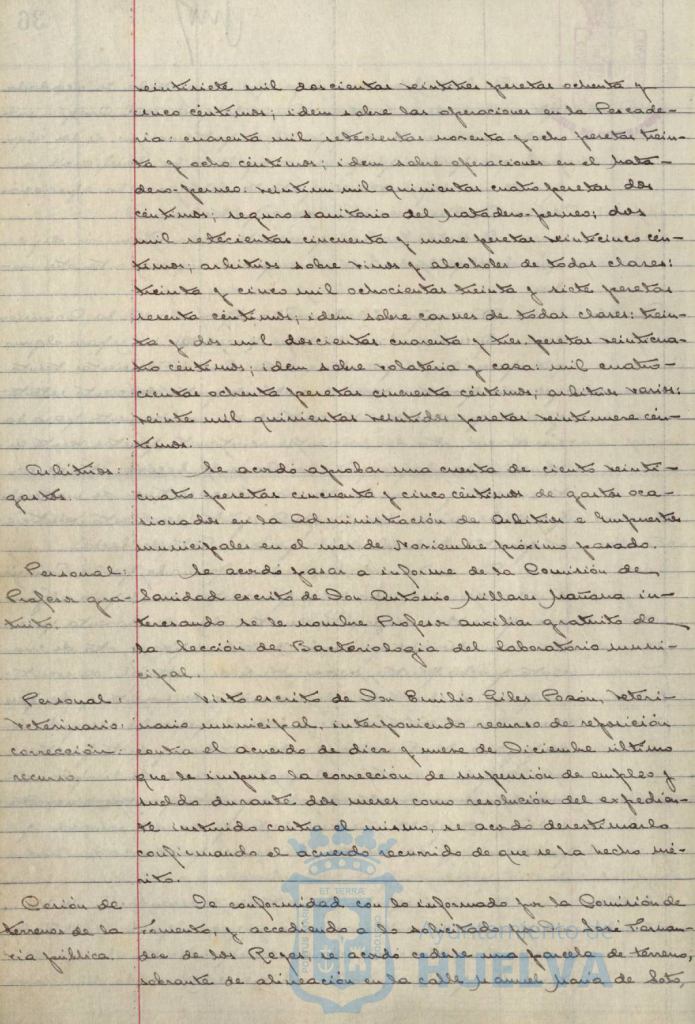 veintisiete mil doscientas veintitres pesetas ochenta y
cinco céntimos; idem sobre las operaciones en la Pescade-
ria: cuarenta mil setecientas noventa y ocho pesetas trein-
ta y ocho céntimos; idem sobre operaciones en el mata-
dero-porcuno: veintiun mil quinientas cuatro pesetas dos
céntimos; seguro sanitario del matadero-porcuno; dos
mil setecientas cincuenta y nueve pesetas veinticinco cén-
timos; arbitrios sobre vinos y alcoholes de todas clases:
treinta y cinco mil ochocientas treinta y siete pesetas
sesenta céntimos; idem sobre carnes de todas clases: trein-
ta y dos mil doscientas cuarenta y tres pesetas veinticua-
tro céntimos; idem sobre volateria y casa: mil cuatro-
cientas ochenta pesetas cincuenta céntimos; arbitrios varios:
veinte mil quinientas veintidos pesetas veintinueve cén-
timos.
Arbitrios: Se acordó aprobar una cuenta de ciento veinti-
gastos. cuatro pesetas cincuenta y cinco céntimos de gastos oca-
sionados en la Administración de Arbitrios e Impuestos
municipales en el mes de Noviembre próximo pasado.
Personal: Se acordó pasar a informe de la Comisión de
Profesor gra- Sanidad escrito de Don Antonio Millares Mañana in-
tuito. teresando se le nombre Profesor auxiliar gratuito de
la Sección de Bacteriologia del laboratorio muni-
cipal.
Personal: Visto escrito de Don Emilio Giles Pozón, Veteri-
Veterinario: nario municipal, interponiendo recurso de reposición
corrección: contra el acuerdo de diez y nueve de Diciembre último
recurso. que le impuso la corrección de suspensión de empleo y
sueldo durante dos meses como resolución del expedien-
te instruido contra el mismo, se acordó desestimarlo
confirmando el acuerdo recurrido de que se ha hecho mé-
rito.
Cesión de De conformidad con lo informado por la Comisión de
terrenos de la Fomento, y accediendo a lo solicitado por D. José Fernan-
via pública. dez de los Reyes, se acordó cederle una parcela de terreno,
sobrante de alineación en la calle Manuel Maria de Soto,
Ayuntamiento de
HUELVA